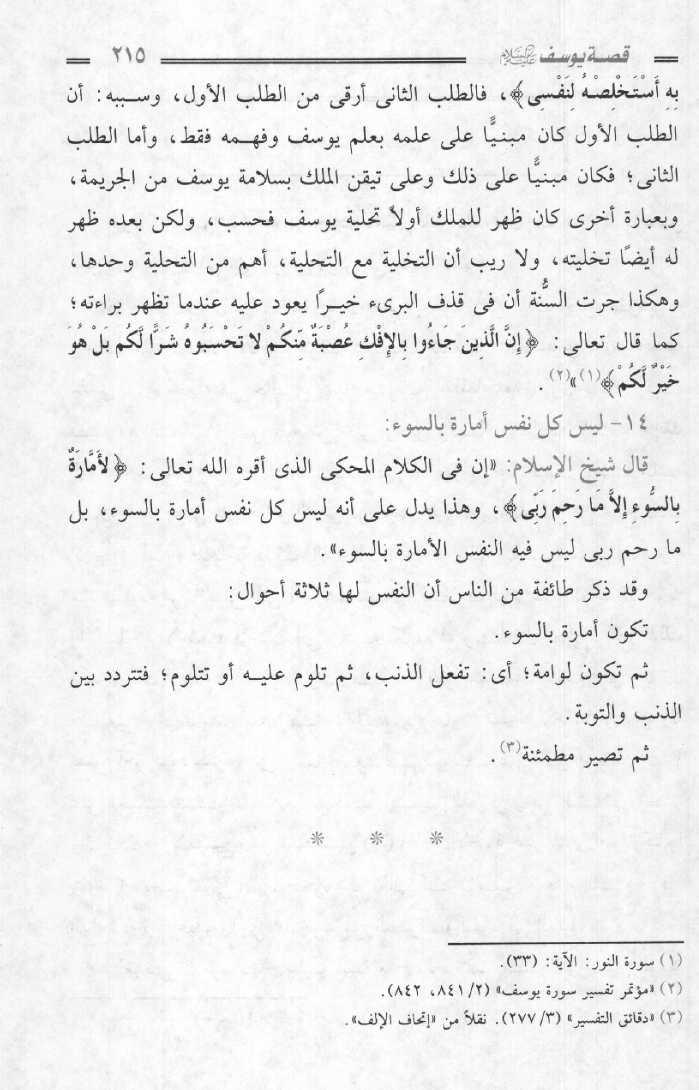 قصة يوسف عليه السلام ٢١٥
بِهِ أَسْتَخْلِصْهُ لِنَفْسِى﴾، فالطلب الثانى أرقى من الطلب الأول، وسببه: أن
الطلب الأول كان مبنيًّا على علمه بعلم يوسف وفهمه فقط، وأما الطلب
الثانى؛ فكان مبنيًّا على ذلك وعلى تيقن الملك بسلامة يوسف من الجريمة،
وبعبارة أخرى كان ظهر للملك أولاً تحلية يوسف فحسب، ولكن بعده ظهر
له أيضًا تخليته، ولا ريب أن التخلية مع التحلية، أهم من التحلية وحدها،
وهكذا جرت السُّنة أن فى قذف البرىء خيرًا يعود عليه عندما تظهر براءته؛
كما قال تعالى: ﴿إِنَّ الَّذِينَ جَاءُوا بِالإِفْكِ عُصْبَةٌ مِّنكُمْ لا تَحْسَبُوهُ شَرًّا لَّكُم بَلْ هُوَ
خَيْرٌ لَّكُمْ﴾(١)»(٢).
١٤- ليس كل نفس أمارة بالسوء:
قال شيخ الإسلام: «إن فى الكلام المحكى الذى أقره الله تعالى: ﴿لأَمَّارَةٌ
بِالسُّوءِ إِلاَّ مَا رَحِمَ رَبِّى﴾، وهذا يدل على أنه ليس كل نفس أمارة بالسوء، بل
ما رحم ربى ليس فيه النفس الأمارة بالسوء».
وقد ذكر طائفة من الناس أن النفس لها ثلاثة أحوال:
تكون أمارة بالسوء.
ثم تكون لوامة؛ أى: تفعل الذنب، ثم تلوم عليه أو تتلوم؛ فتتردد بين
الذنب والتوبة.
ثم تصير مطمئنة(٣).
* * *
(١) سورة النور: الآية: (٣٣).
(٢) «مؤتمر تفسير سورة يوسف» (٨٤١/٢، ٨٤٢).
(٣) «دقائق التفسير» (٢٧٧/٣). نقلاً من «إتحاف الإلف».